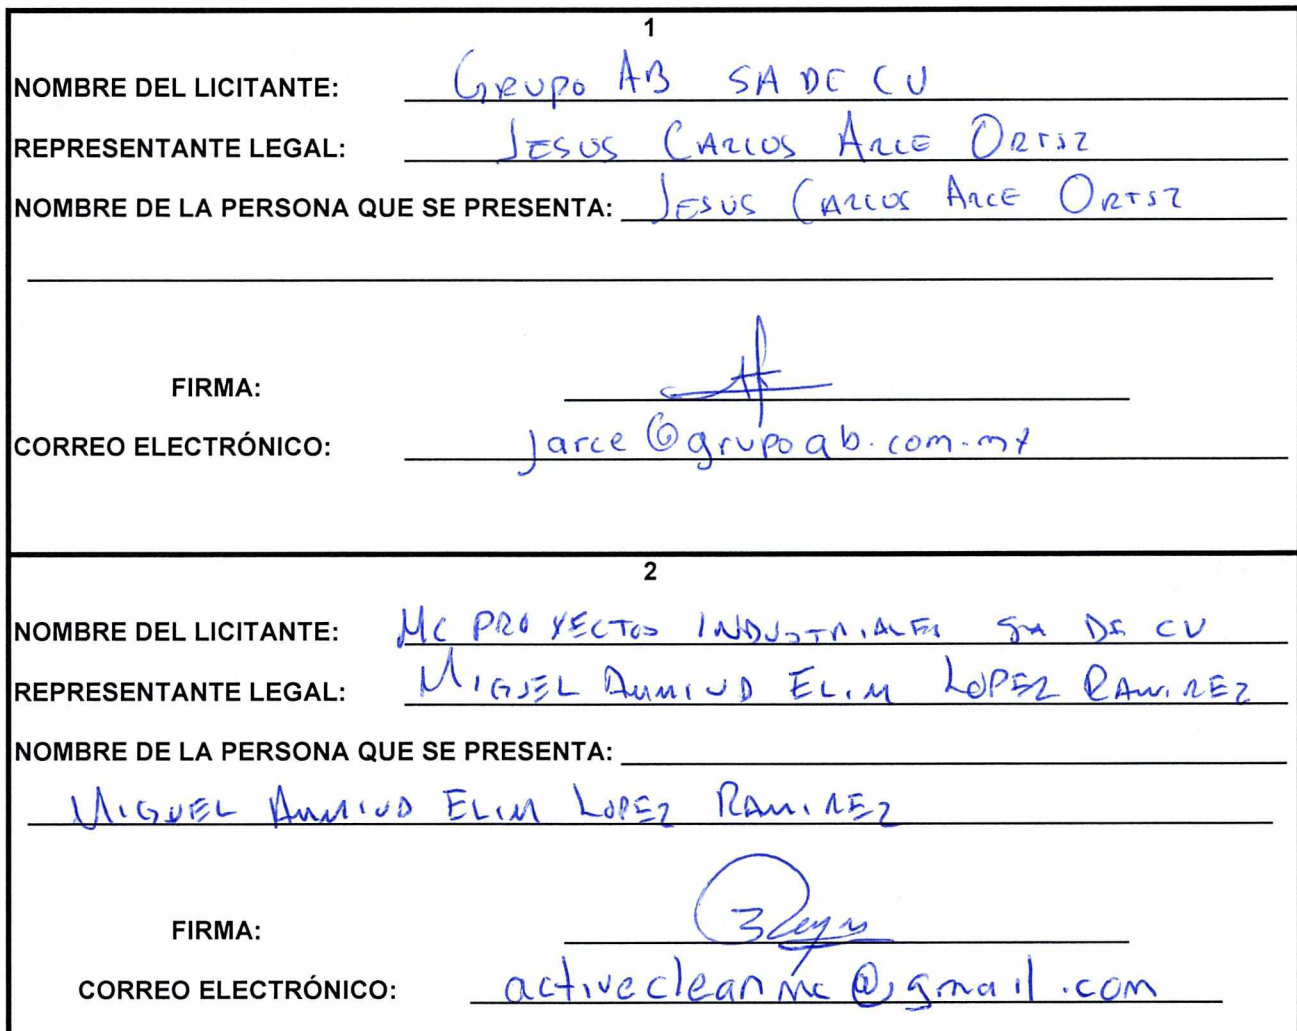 1
NOMBRE DEL LICITANTE: GRUPO AB SA DE CV
REPRESENTANTE LEGAL: JESUS CARLOS ARCE ORTIZ
NOMBRE DE LA PERSONA QUE SE PRESENTA: JESUS CARLOS ARCE ORTIZ
FIRMA:
CORREO ELECTRÓNICO: jarce@grupoab.com.mx
2
NOMBRE DEL LICITANTE: MC PROYECTOS INDUSTRIALES SA DE CV
REPRESENTANTE LEGAL: MIGUEL ELIM LOPEZ RAMIREZ
NOMBRE DE LA PERSONA QUE SE PRESENTA:
MIGUEL ELIM LOPEZ RAMIREZ
FIRMA:
CORREO ELECTRÓNICO: activecleanmc@gmail.com